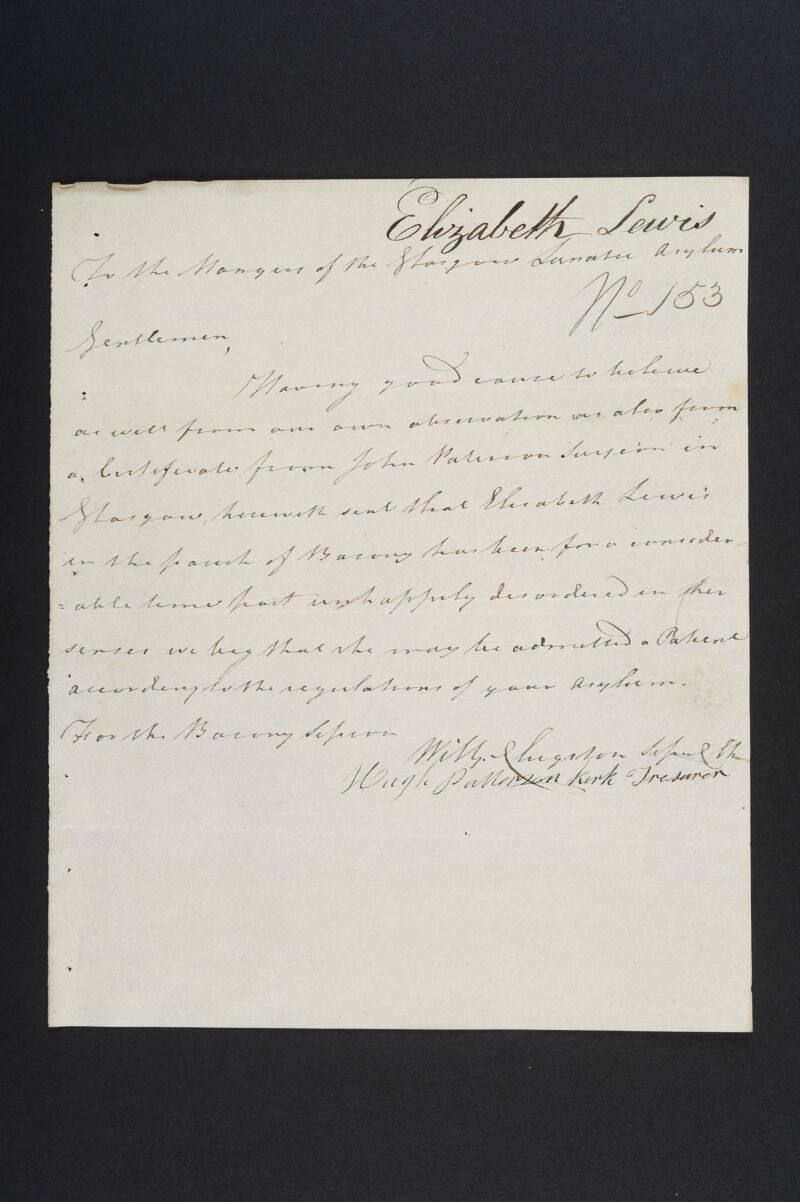 Elizabeth Lewis
To the Mangers of the Glasgow Lunatic Asylum
No 153
Gentlemen,
Having good cause to beleive
as well from our own observation as also from
a Certificate from John Paterson Surgeon in
Glasgow, herewith sent that Elisabeth Lewis
in the parish of Barony has been for a consider-
=able time past unhappily desordered in her
senses we beg that she may be admitted a Patient
according to the regulations of your Asylum.
For the Barony Session
Will. Clugston
Hugh Patterson Kirk Tresurer